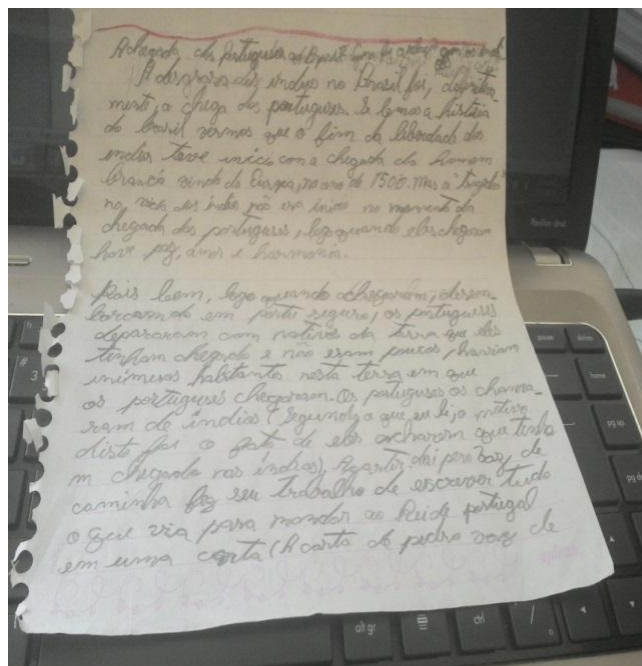 A chegada dos portugueses ao Brasil
A desgrasa dos indios no Brasil foi,
mente, a chega dos portugueses. Se lemos a história
do brasil vermos que o fim da liberdade dos
indios teve inicio com a chegada do homem
branca vindo da Europa, no ano de 1500. Mas a "tragedia"
na vida dos indio não no momento da
chegada dos portugueses, logo quando eles chegaram
hove paz, amor e harmonia.
Pois bem, logo quando achegaram, desem-
barcarndo em porto seguro, os portugueses
depararam com nativos da terra que eles
tinham chegado e não eram poucos, haviam
inúmeros habitantes nesta terra em que
os portugueses chegaram. Os portugueses os chama-
ram de índios (segundo a que eu lí, o motivo
disto foi o fato de eles acharam que tinha
m chegado nas índias), Apartir daí pero vaz de
caminha fez seu trabalho de escrever tudo
o que via para mandar ao Rei de portugal
em uma carta (A carta de pedro vaz de
3
#
pause
delete
home
pg up
pg dn
alt gr
ctrl